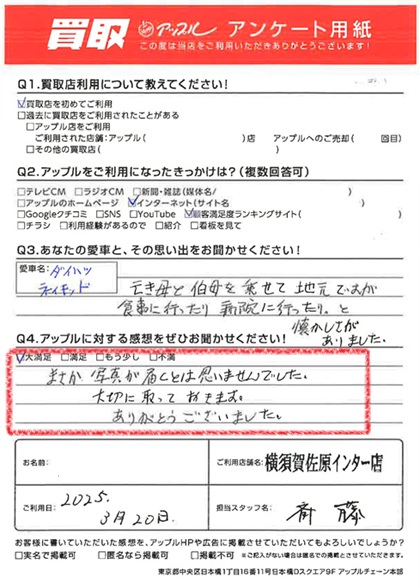 買取 アップル アンケート用紙
この度は当店をご利用いただきありがとうございます!
Q1.買取店利用について教えてください!
☑買取店を初めてご利用
□過去に買取店をご利用されたことがある
□アップル店をご利用
ご利用された店舗:アップル( )店 アップルへのご売却( 回目)
□その他の買取店( )
Q2.アップルをご利用になったきっかけは?(複数回答可)
□テレビCM □ラジオCM □新聞・雑誌(媒体名/ )
□アップルのホームページ ☑インターネット(サイト名 )
□Googleクチコミ □SNS □YouTube ☑顧客満足度ランキングサイト( )
□チラシ □利用経験があるので □紹介 □看板を見て
Q3.あなたの愛車と、その思い出をお聞かせください!
愛車名:ダイハツ
ネイキッド
亡き母と伯母を乗せて地元ですが
食事に行ったり病院に行ったり。と
懐かしてが
ありました。
Q4.アップルに対する感想をぜひお聞かせください!
☑大満足 □満足 □もう少し □不満
まさか写真が届くとは思いませんでした。
大切に取っておきます。
ありがとうございました。
お名前:
ご利用店舗名:横須賀佐原インター店
ご利用日: 2025.
3月20日.
担当スタッフ名: 斉藤
お客様に書いていただいた感想を、アップルHPや広告に掲載させていただいてもよろしいでしょうか?
□実名で掲載可 □匿名なら掲載可 □掲載不可 ※ご記入がない場合は匿名での掲載とさせていただきます。
東京都中央区日本橋1丁目16番11号日本橋Dスクエア9F アップルチェーン本部